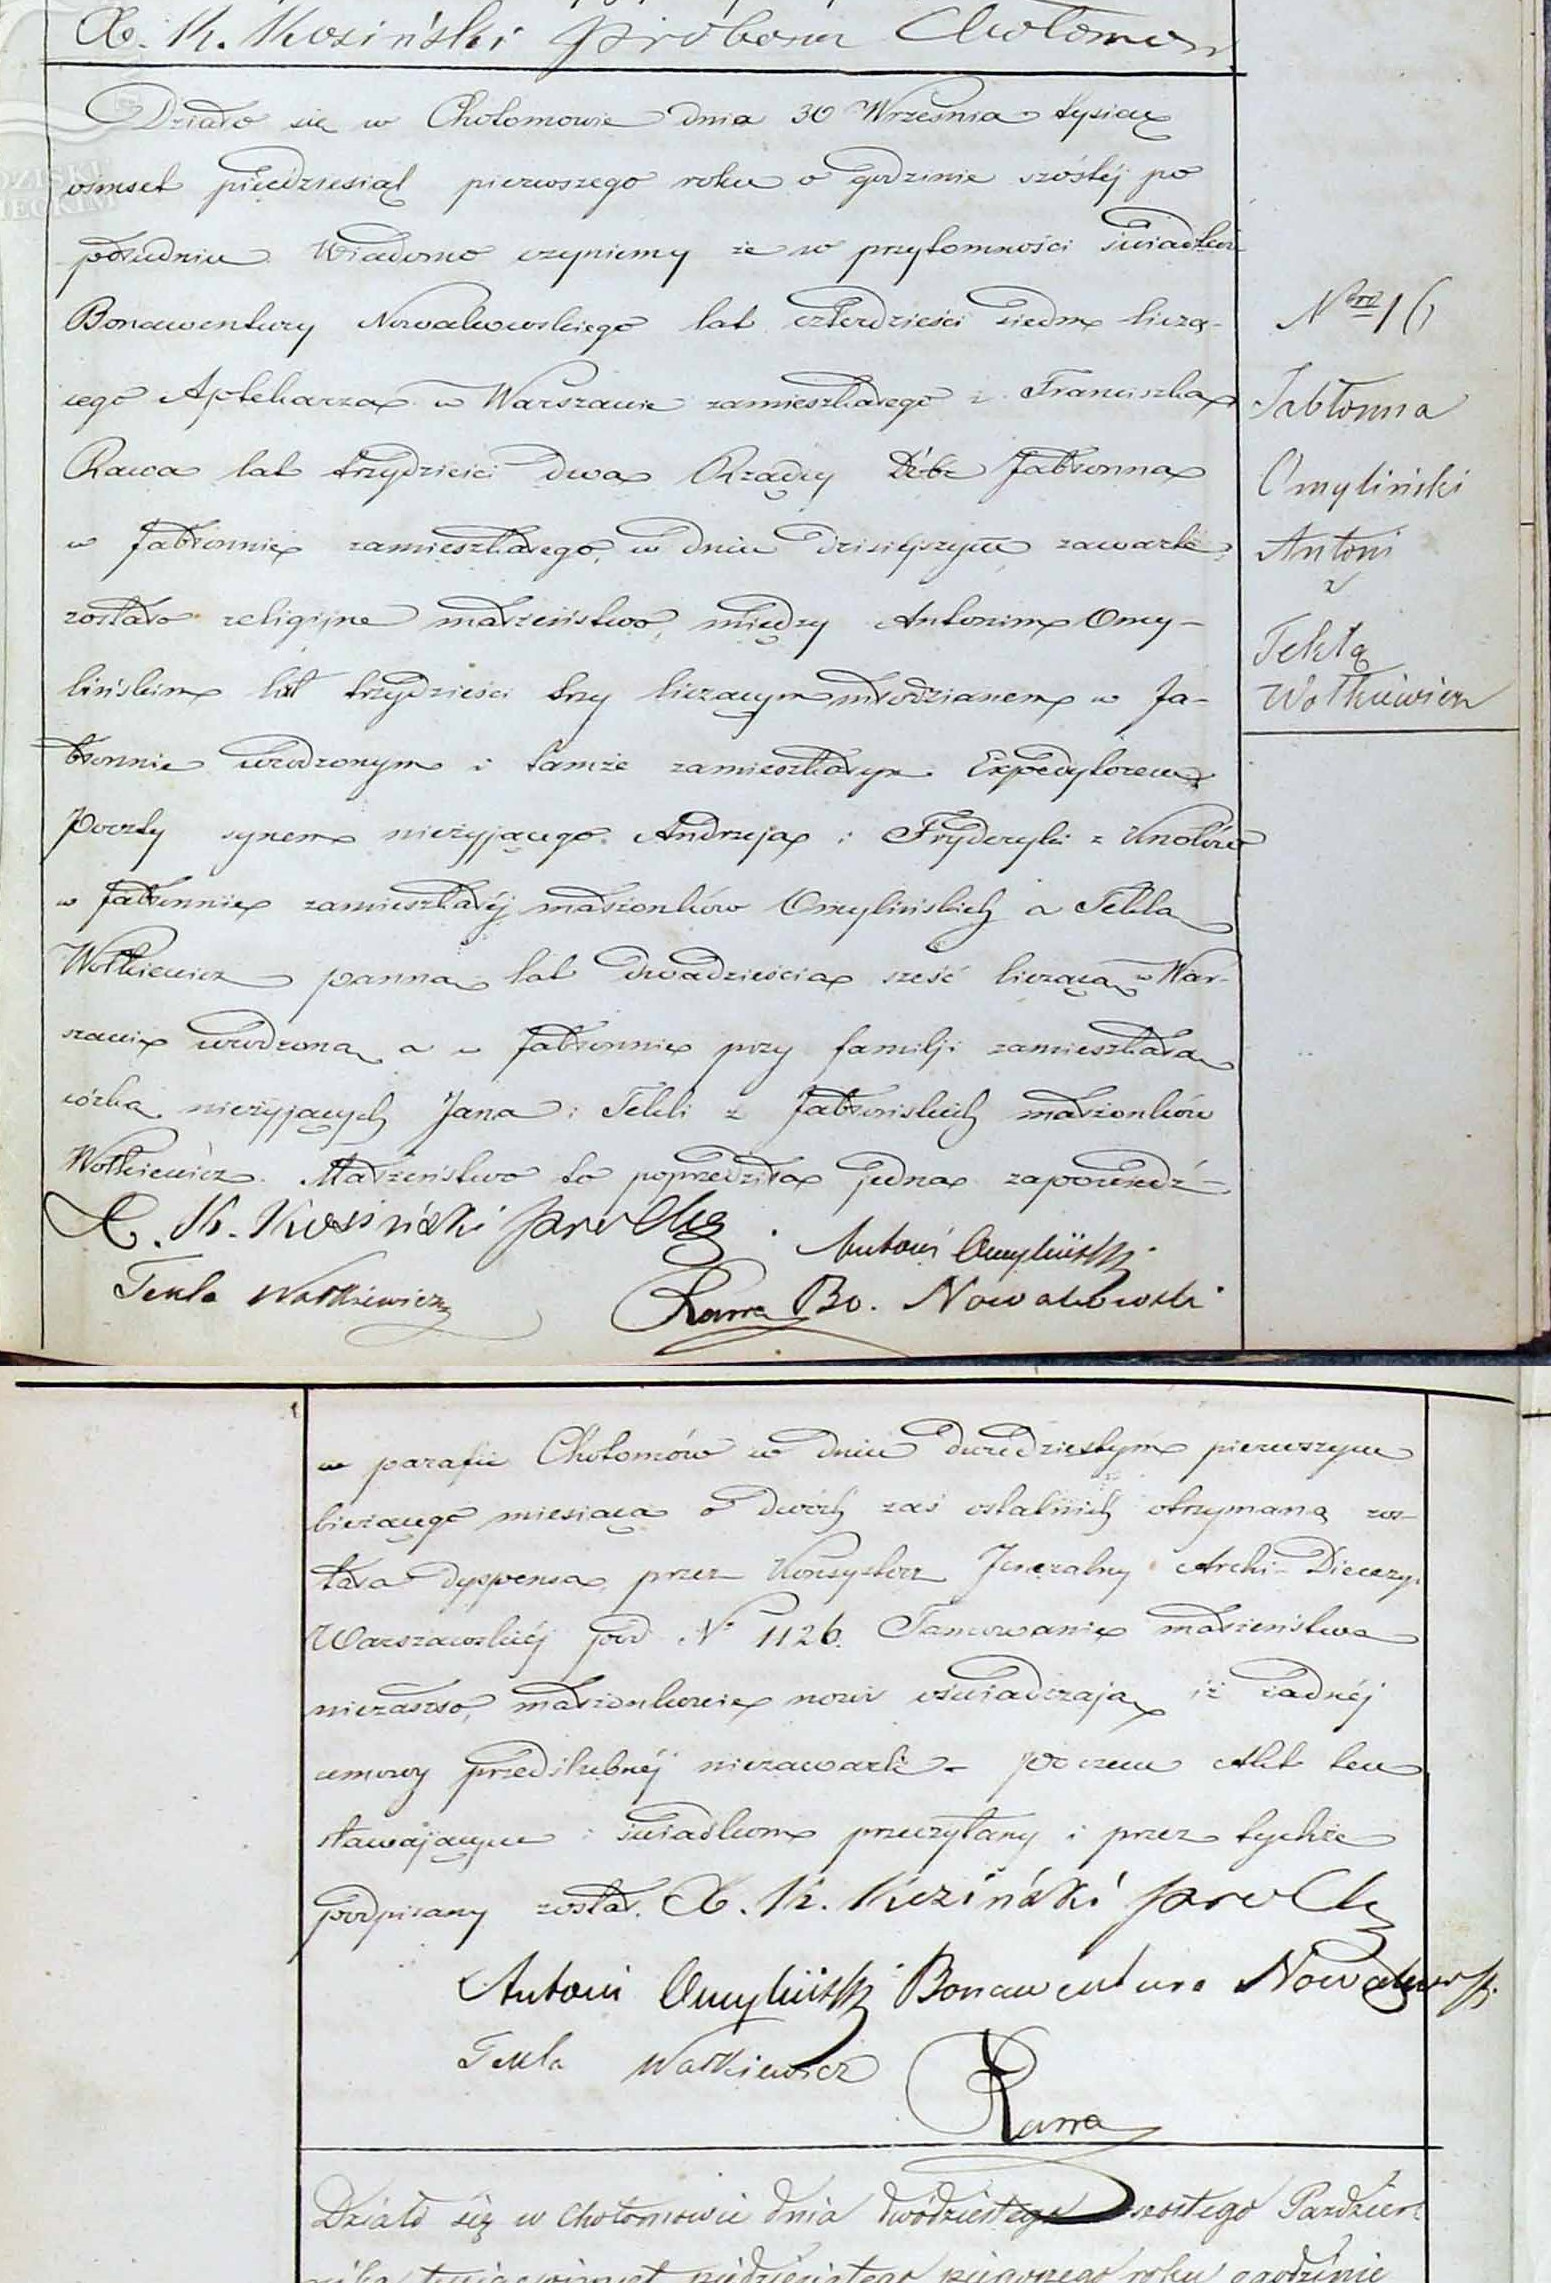 X. K. Kosiński proboszcz Chotomow
Działo się w Chotomowie dnia 30 Września tysiąc
ośmset pięćdziesiąt pierwszego roku o godzinie szóstéj po
południu. Wiadomo czyniemy że w przytomności świadków
Bonawentury Nowakowskiego lat czterdzieści siedm liczą-
cego Aptekarza w Warszawie zamieszkałego i Franciszka
Rawa lat trzydzieści dwa Rządcy Dóbr Jabłonna
w Jabłonnie zamieszkałego, w dniu dzisiejszym zawarte
zostało religijne małżeństwo, między Antonim Omy-
lińskim lat trzydzieści trzy liczącym młodzianem w Ja-
błonnie urodzonym i tamże zamieszkałym Expedytorem
Poczty synem nieżyjącego Andrzeja i Fryderyki z Knolów
w Jabłonnie zamieszkałéj małżonków Omylińskich a Teklą
Wołkiewicz panną lat dwadzieścia sześć liczącą w War-
szawie urodzoną a w Jabłonnie przy familji zamieszkałą
córką nieżyjących Jana i Tekli z Jabłońskich małżonków
Wołkiewicz. Małżeństwo to poprzedziła jedna zapowiedź
X. K. Kosiński pro Ch
Antoni Omyliński
Tekla Wołkiewicz
Rawa Bo. Nowakowski
Nro 16
Jabłonna
Omyliński
Antoni
z
Teklą
Wołkiewicz
ODZISKI
IECKIM
w parafii Chotomów w dniu dwudziestym pierwszym
bieżącego miesiąca o dwóch zaś ostatnich otrzymaną zos-
tała dyspensa przez Konsystorz Jeneralny Archi-Diecezyi
Warszawskiéj pod No 1126. Tamowanie małżeństwa
niezaszło, małżonkowie nowi oświadczają iż żadnéj
umowy przedślubnéj niezawarli - po czem Akt ten
stawającym i świadkom przeczytany i przez tychże
podpisany został. X. K. Kosiński pro Ch
Antoni Omyliński Bonawentura Nowakowski
Tekla Wołkiewicz
Rawa
Działo się w Chotomowie dnia dwódziestego szóstego Paździer-
nika tysiąc ośmset pięćdziesiątego pierwszego roku o godzinie